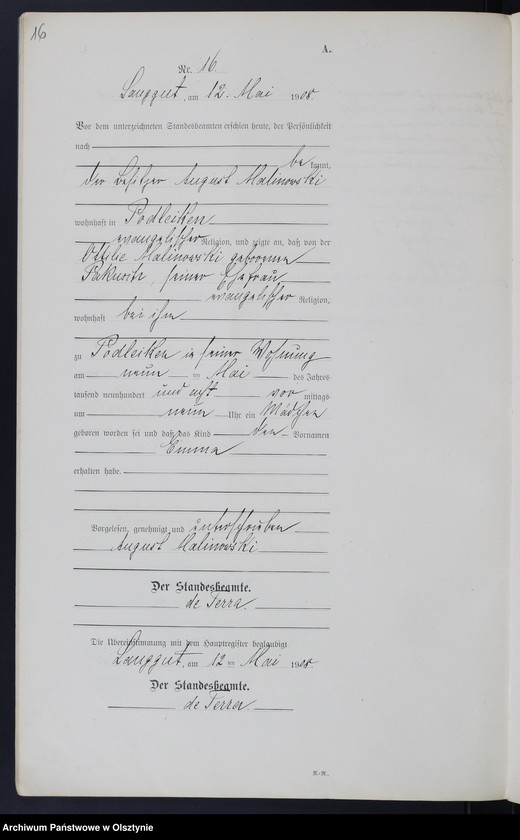 16
A.
Nr. 16.
Langgut, am 12. Mai 1908.
Vor dem unterzeichneten Standesbeamten erschien heute, der Persönlichkeit
nach
be kannt,
der Besitzer August Malinowski
wohnhaft in Podleiken
evangelischer Religion, und zeigte an, daß von der
Ottilie Malinowski geborenen
seiner Ehefrau
evangelischer Religion,
wohnhaft bei ihm
zu Podleiken in seiner Wohnung
am neun ten Mai des Jahres
tausend neunhundert und acht vor mittags
um neun Uhr ein Mädchen
geboren worden sei und daß das Kind den Vornamen
Emma
erhalten habe.
Vorgelesen, genehmigt und unterschrieben
August Malinowski
Der Standesbeamte.
de Terra.
Die Übereinstimmung mit dem Hauptregister beglaubigt
Langgut, am 12 ten Mai 1908.
Der Standesbeamte.
de Terra.
Archiwum Państwowe w Olsztynie